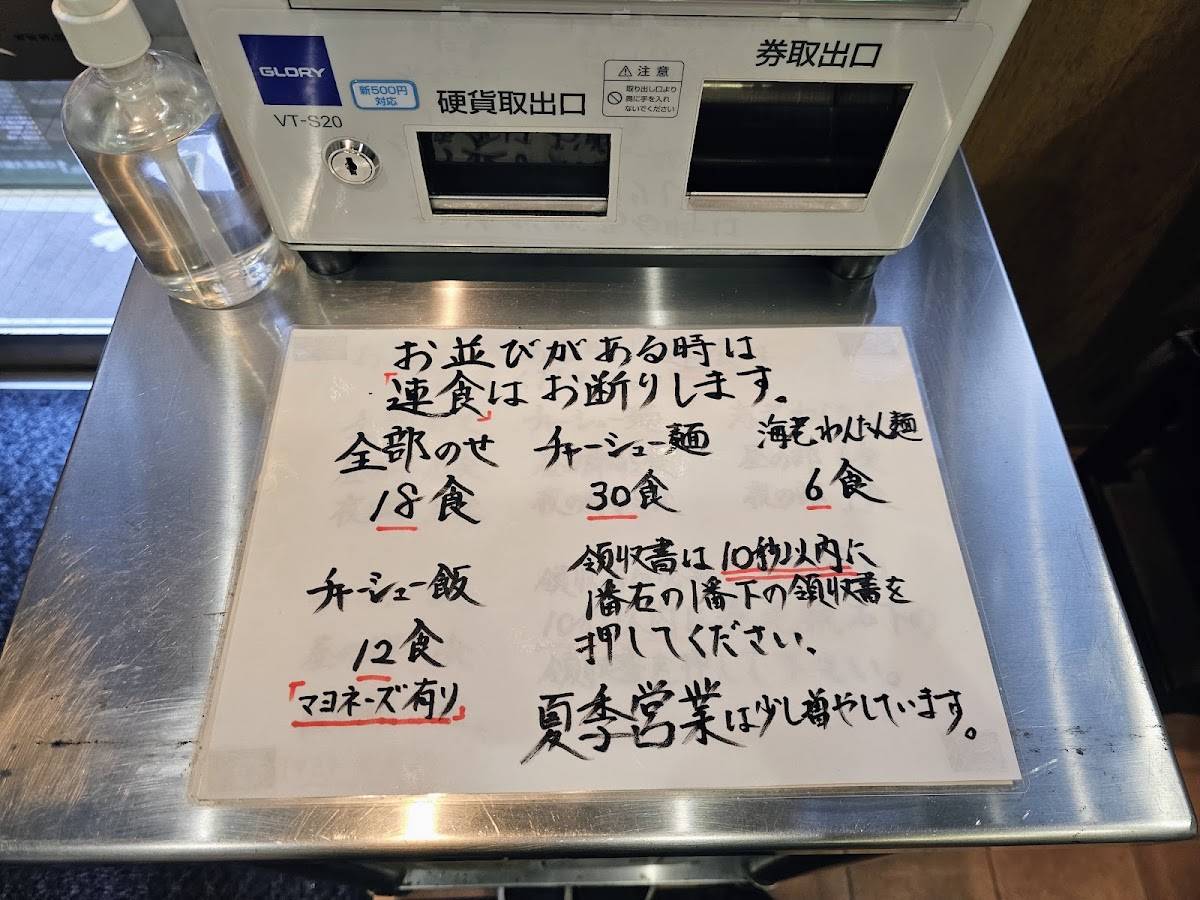 GLORY
VT-S20
新500円
対応
硬貨取出口
注意
取り出し口より
奥に手を入れ
ないでください
券取出口
お並びがある時は
「連食」はお断りします。
全部のせ
18食
チャーシュー麺
30食
海老わんたん麺
6食
チャーシュー飯
12食
「マヨネーズ有り」
領収書は10秒以内に
1番右の1番下の領収書を
押してください。
夏季営業は少し増やしています。